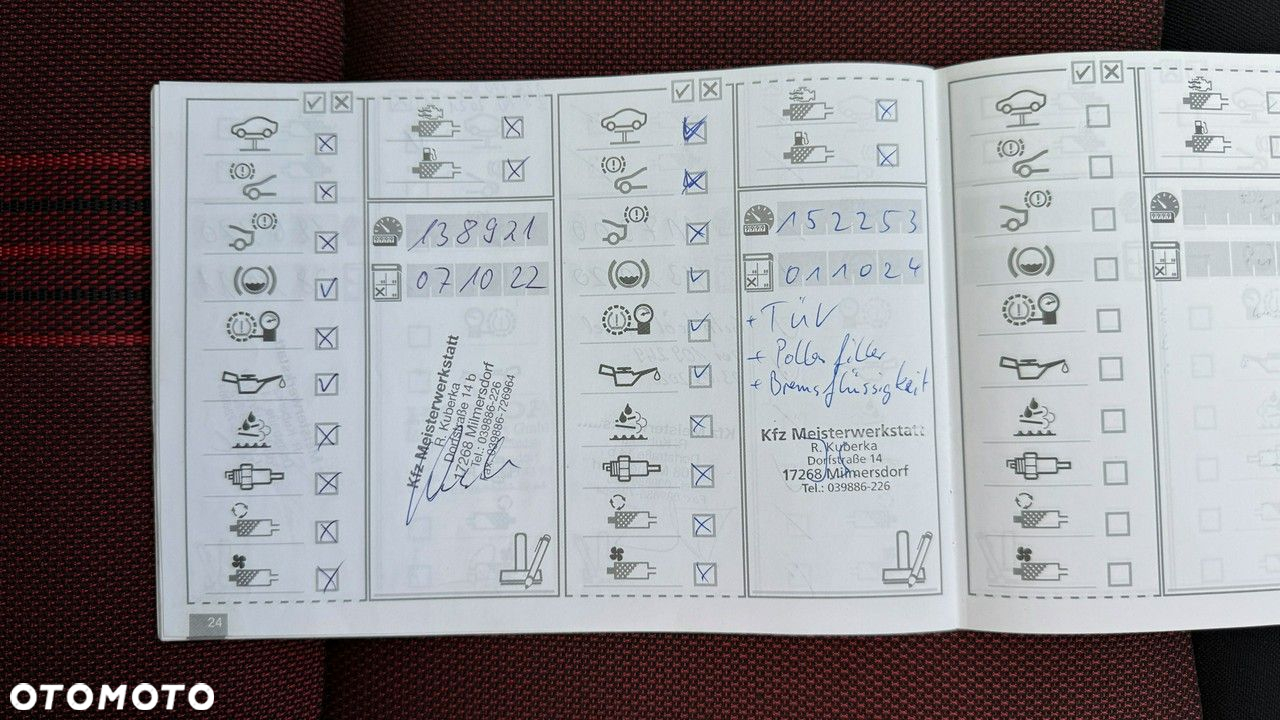 138921
071022
Kfz Meisterwerkstatt
R. Kuberka
Dorfstraße 14 b
17268 Milmersdorf
Tel.: 039886-226
039886-726964
152253
011024
+ TÜV
+ Pollenfilter
+ Bremsflüssigkeit
Kfz Meisterwerkstatt
R. Kuberka
Dorfstraße 14
17268 Milmersdorf
Tel.: 039886-226
24
OTOMOTO